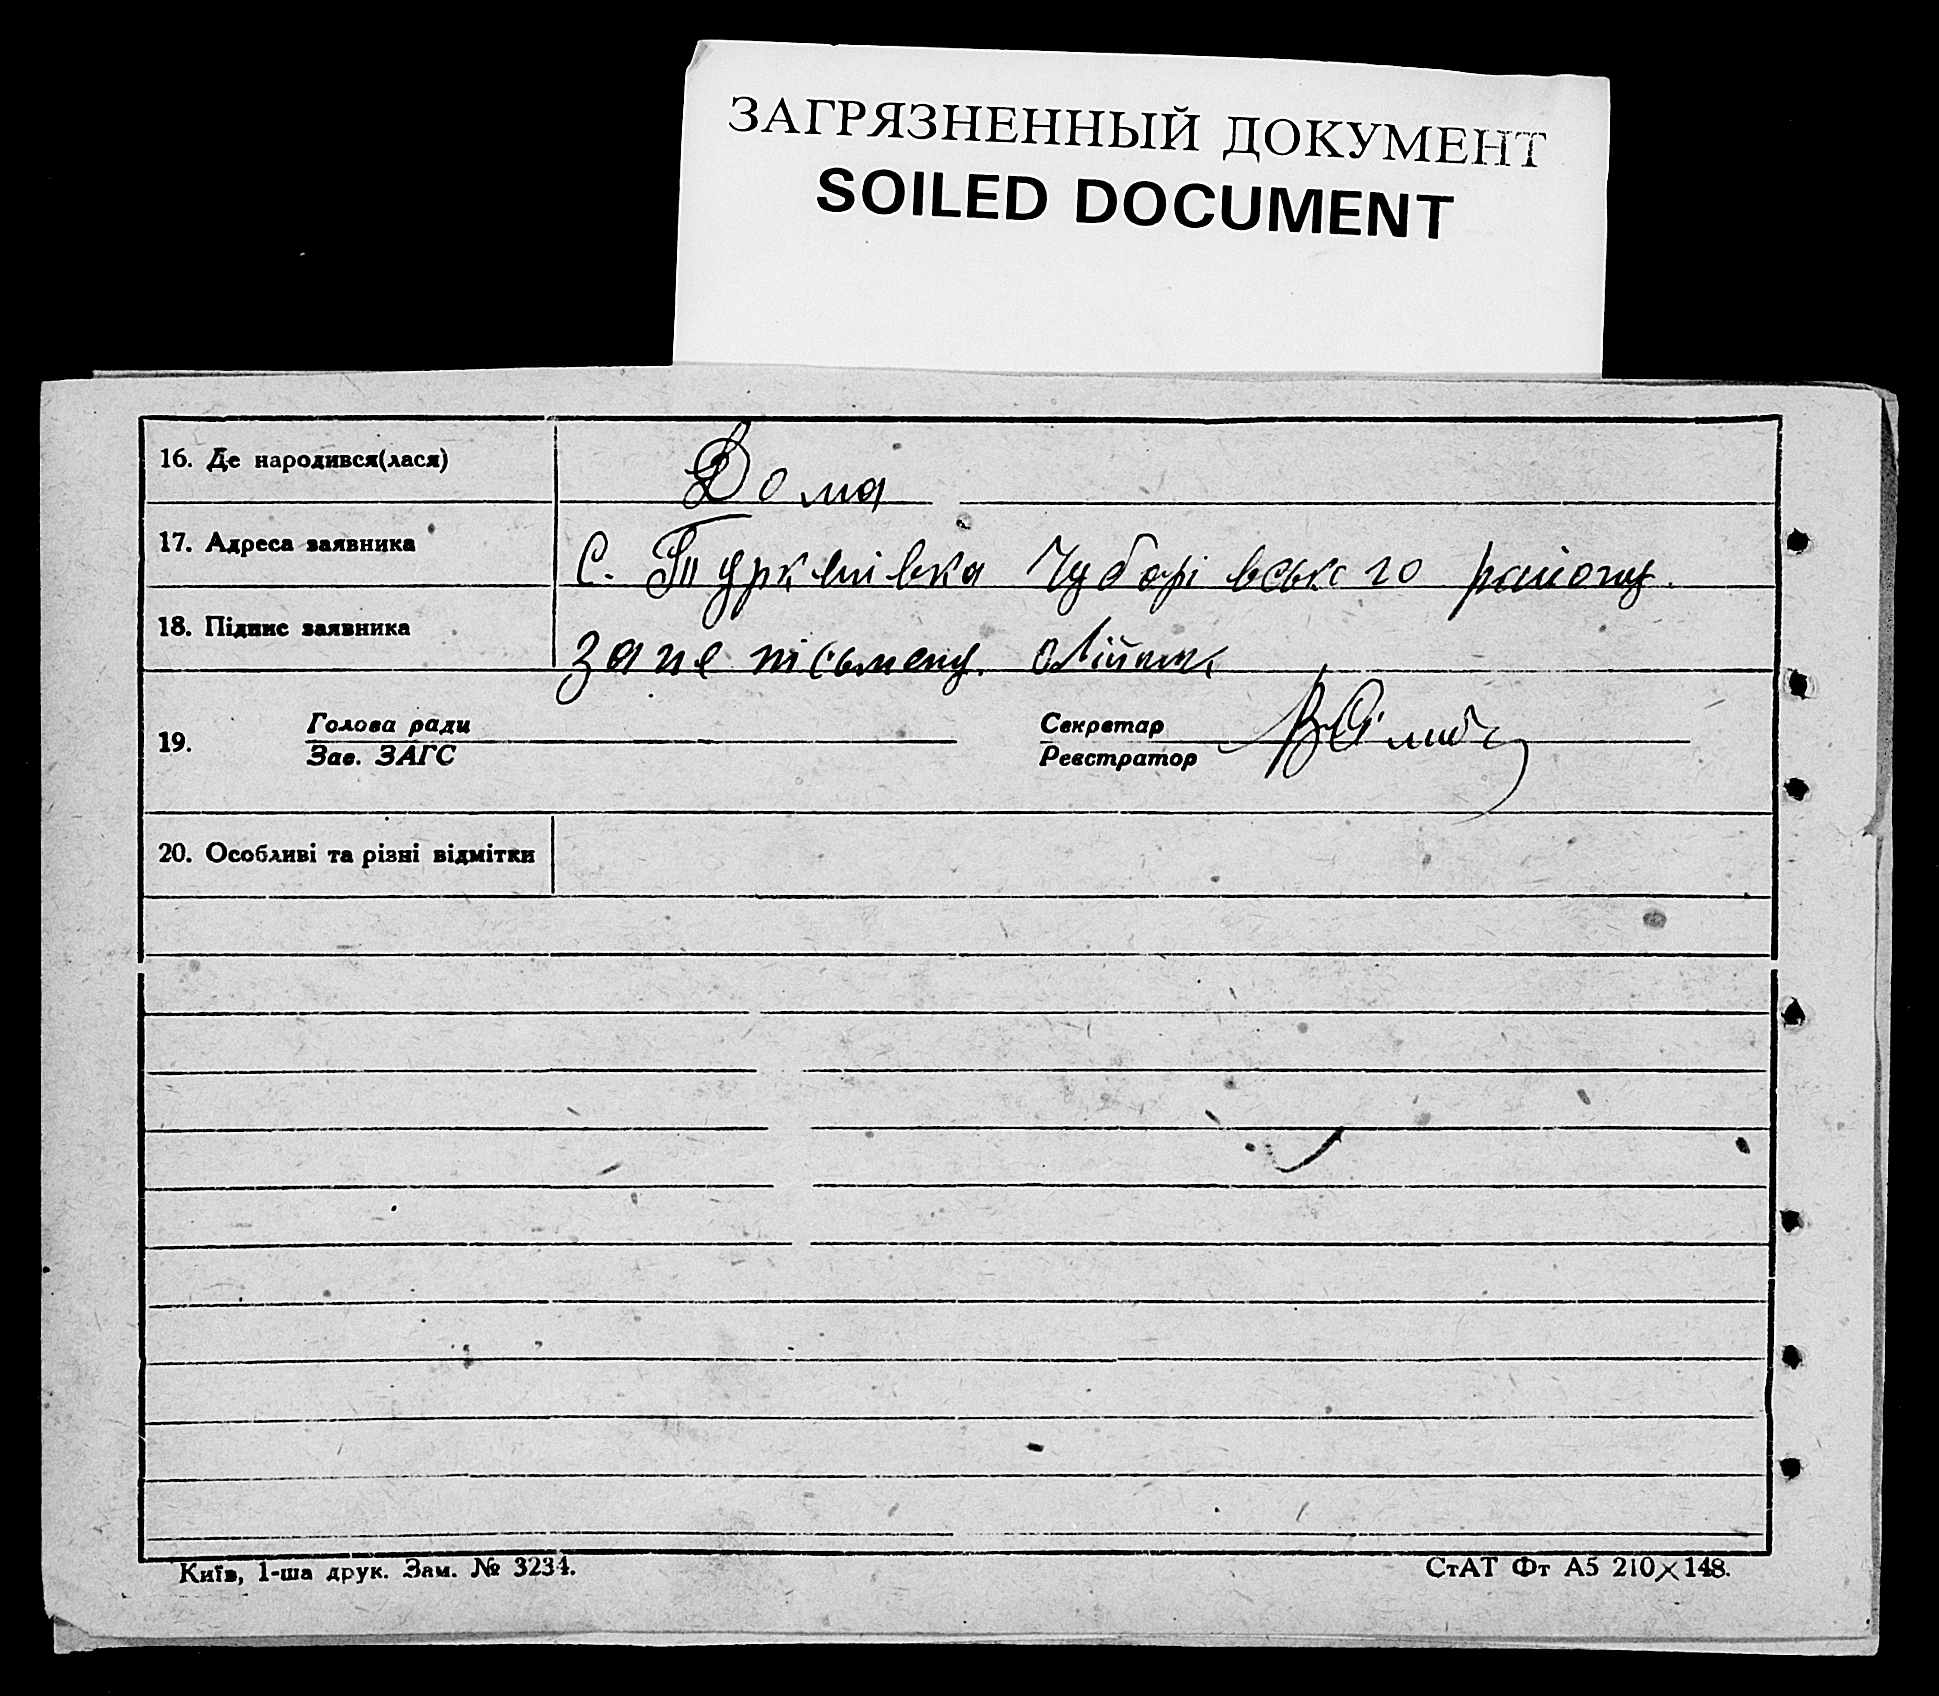 ЗАГРЯЗНЕННЫЙ ДОКУМЕНТ
SOILED DOCUMENT
16. Де народився(лася) Дома
17. Адреса заявника С. району
18. Підпис заявника за не письмену
19. Голова ради Секретар
Зав. ЗАГС Реєстратор
20. Особливі та різні відмітки
Київ, 1-ша друк. Зам. № 3234. СтАТ Фт А5 210×148.